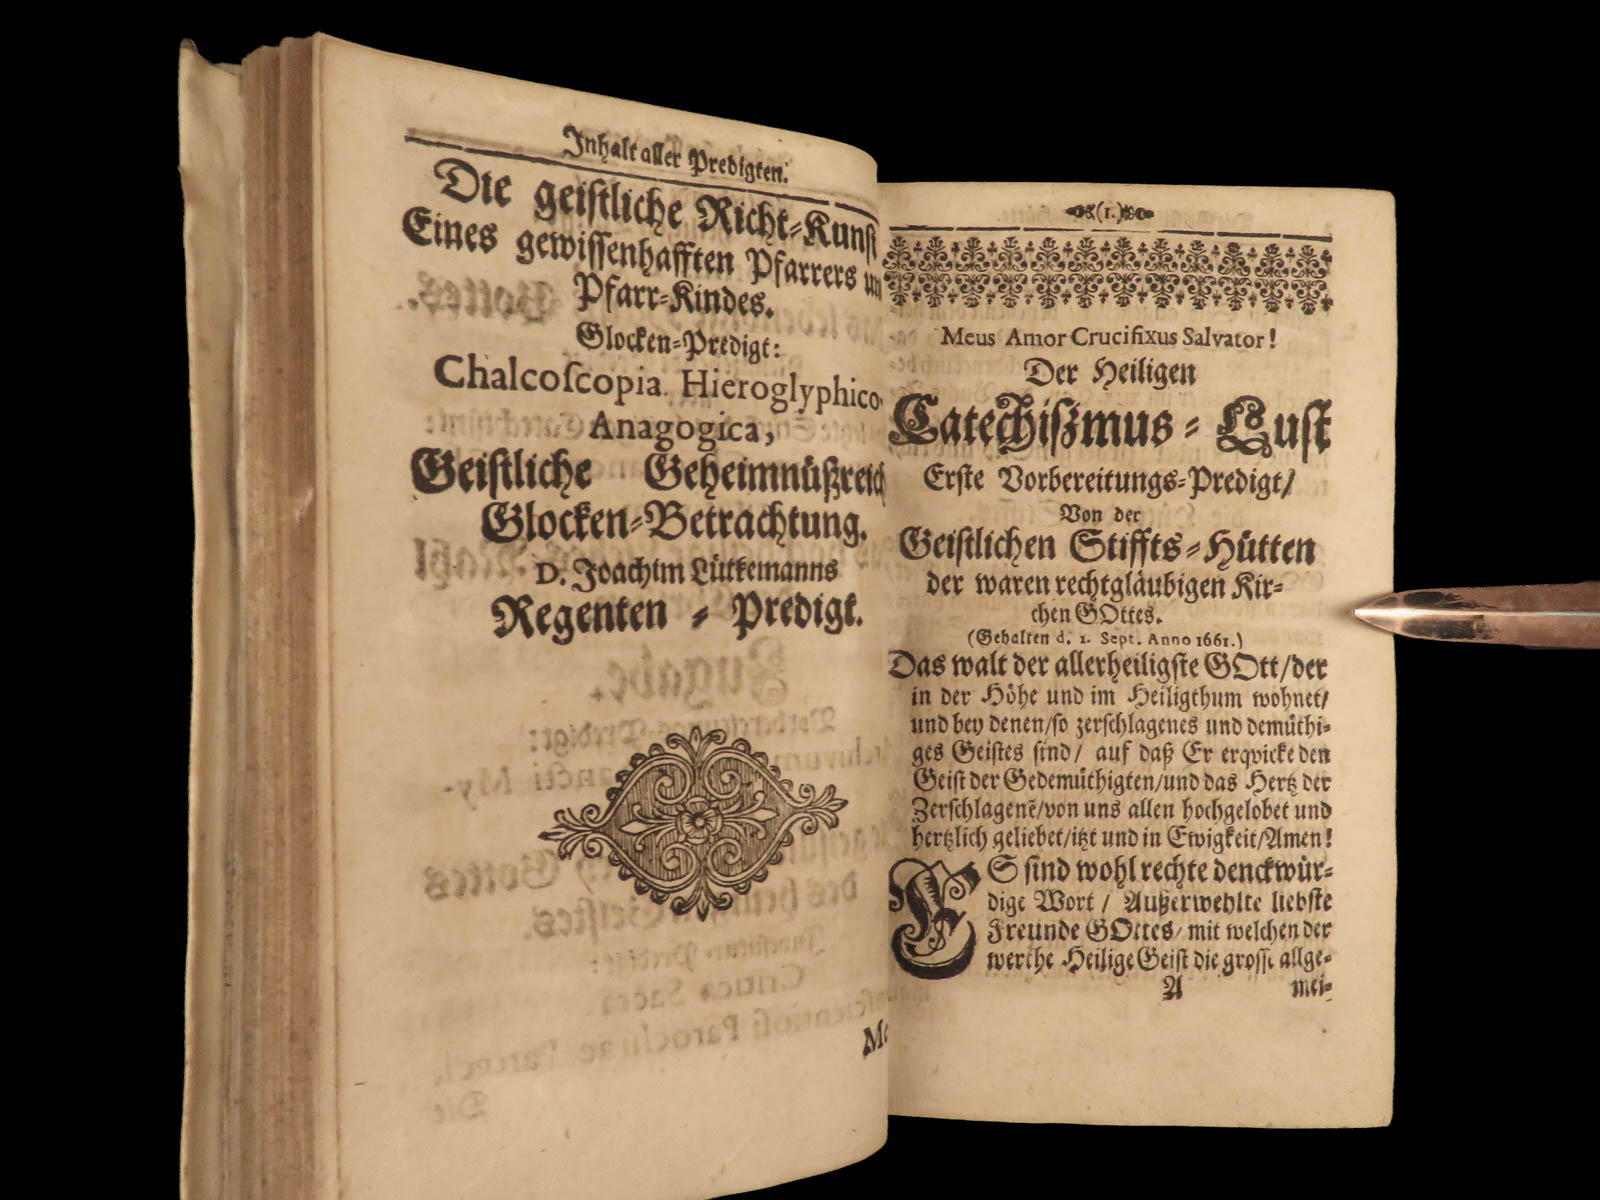 Inhalt aller Predigten.
Die geistliche Richt-Kunst
Eines gewissenhafften Pfarrers un
Pfarr-Kindes.
Glocken-Predigt:
Chalcoſcopia Hieroglyphico-
Anagogica,
Geistliche Geheimnüßreich
Glocken-Betrachtung.
D. Joachim Lütkemanns
Regenten-Predigt.
Me
(1.)
Meus Amor Crucifixus Salvator!
Der Heiligen
Catechiſzmus-Lust
Erste Vorbereitungs-Predigt/
Von der
Geistlichen Stiffts-Hütten
der waren rechtgläubigen Kir-
chen GOttes.
(Gehalten d. 1. Sept. Anno 1661.)
Das walt der allerheiligste GOtt/der
in der Höhe und im Heiligthum wohnet/
und bey denen/so zerſchlagenes und demüthi-
ges Geiſtes ſind/ auf daß Er erqvicke den
Geiſt der Gedemüthigten/und das Hertz der
Zerſchlagenẽ/von uns allen hochgelobet und
hertzlich geliebet/itzt und in Ewigkeit/Amen!
ES ſind wohl rechte denckwür-
dige Wort / Außerwehlte liebſte
Freunde GOttes/ mit welchen der
werthe Heilige Geiſt die groſſe allge-
A mei-